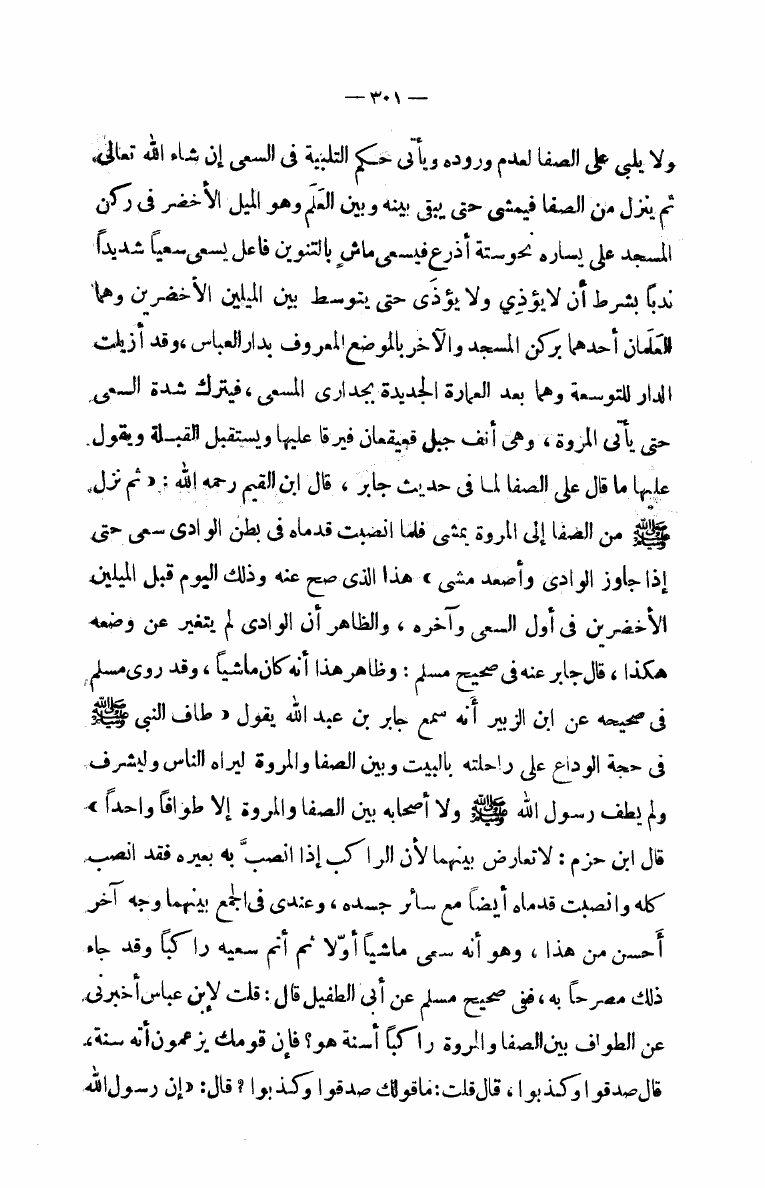 — ٣٠١ —
ولا يلبي على الصفا لعدم وروده ويأتى حكم التلبية فى السعى إن شاء الله تعالى،
ثم ينزل من الصفا فيمشى حتى يبقى بينه وبين العَلَم وهو الميل الأخضر فى ركن
المسجد على يساره نحو ستة أذرع فيسعى ماشٍ بالتنوين فاعل يسعى سعياً شديداً
ندباً بشرط أن لا يؤذِي ولا يؤذَى حتى يتوسط بين الميلين الأخضرين وهما
العَلَمان أحدهما بركن المسجد والآخر بالموضع المعروف بدار العباس، وقد أزيلت
الدار للتوسعة وهما بعد العمارة الجديدة بجدارى المسعى، فيترك شدة السعى
حتى يأتى المروة، وهى أنف جبل قعيقعان فيرقا عليها ويستقبل القبلة ويقول
عليها ما قال على الصفا لما فى حديث جابر ، قال ابن القيم رحمه الله : « ثم نزل
ﷺ من الصفا إلى المروة يمشى فلما انصبت قدماه فى بطن الوادى سعى حتى
إذا جاوز الوادى وأصعد مشى » هذا الذى صح عنه وذلك اليوم قبل الميلين
الأخضرين فى أول السعى وآخره ، والظاهر أن الوادى لم يتغير عن وضعه
هكذا ، قال جابر عنه فى صحيح مسلم : وظاهر هذا أنه كان ماشياً ، وقد روى مسلم
فى صحيحه عن ابن الزبير أنه سمع جابر بن عبد الله يقول « طاف النبي ﷺ
فى حجة الوداع على راحلته بالبيت وبين الصفا والمروة ليراه الناس وليشرف
ولم يطف رسول الله ﷺ ولا أصحابه بين الصفا والمروة إلا طوافاً واحداً »
قال ابن حزم : لا تعارض بينهما لأن الراكب إذا انصبَّ به بعيره فقد انصب
كله وانصبت قدماه أيضاً مع سائر جسده ، وعندى فى الجمع بينهما وجه آخر
أحسن من هذا ، وهو أنه سعى ماشياً أوّلا ثم أتم سعيه راكباً وقد جاء
ذلك مصرحاً به، ففى صحيح مسلم عن أبى الطفيل قال : قلت لابن عباس أخبرنى
عن الطواف بين الصفا والمروة راكباً أسنة هو؟ فإن قومك يزعمون أنه سنة،
قال صدقوا وكذبوا ، قال قلت : ماقولك صدقوا وكذبوا ؟ قال: « إن رسول الله